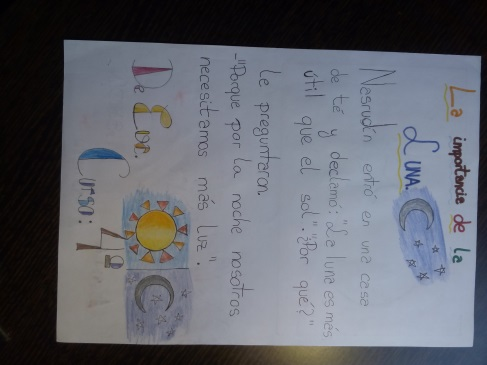 La importancia de la
LUNA.
Nasrudín entró en una casa
de té y declamó: "La luna es más
útil que el sol". "¿Por qué?"
le preguntaron.
-"Porque por la noche nosotros
necesitamos más luz".
De Eva.
Curso: 4º